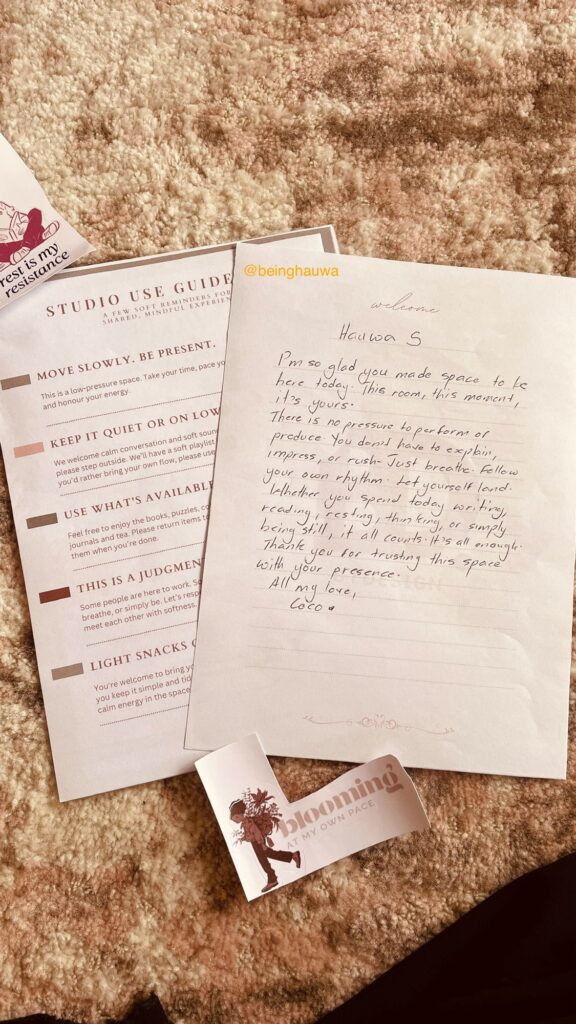 rest is my
resistance
STUDIO USE GUIDE
A FEW SOFT REMINDERS FOR
SHARED, MINDFUL EXPERIEN
MOVE SLOWLY. BE PRESENT.
This is a low-pressure space. Take your time, pace
and honour your energy.
KEEP IT QUIET OR ON LOW
We welcome calm conversation and soft
please step outside. We'll have a soft playlist
you'd rather bring your own flow, please use
USE WHAT'S AVAILABLE
Feel free to enjoy the books, puzzles,
journals and tea. Please return items
them when you're done.
THIS IS A JUDGMEN
Some people are here to work.
breathe, or simply be. Let's
meet each other with softness.
LIGHT SNACKS
You're welcome to bring
you keep it simple and
calm energy in the space
@beinghauwa
welcome
Hauwa S
I'm so glad you made space to be
here today. This room, this moment,
it's yours.
There is no pressure to perform or
produce. You don't have to explain,
impress, or rush. Just breathe. Follow
your own rhythm. Let yourself land.
Whether you spend today writing,
reading, resting, thinking, or simply
being still, it all counts. It's all enough.
Thank you for trusting this space
with your presence.
All my love,
Coco
blooming
AT MY OWN PACE